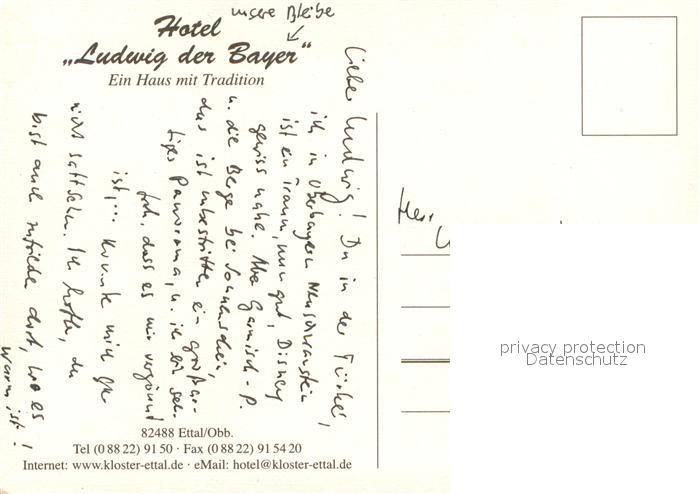 unsere Bleibe
Hotel
„Ludwig der Bayer“
Ein Haus mit Tradition
Lieber Ludwig! Du in der Türkei,
ich in Oberbayern Neuschwanstein
ist ein Traum, nun gut, Disney
gewiss nahe. Aber Garmisch-P.
u. die Berge bei Sonnenschein,
das ist unbestritten ein großar-
tiges Panorama, u. ich bin sehr
froh, dass es mir vergönnt
ist,... konnte mich gar
nicht sattsehen. Ich hoffe, du
bist auch zufrieden dort, wo es
warm ist!
82488 Ettal/Obb.
Tel (0 88 22) 91 50 · Fax (0 88 22) 91 54 20
Internet: www.kloster-ettal.de · eMail: hotel@kloster-ettal.de
Herr
privacy protection
Datenschutz